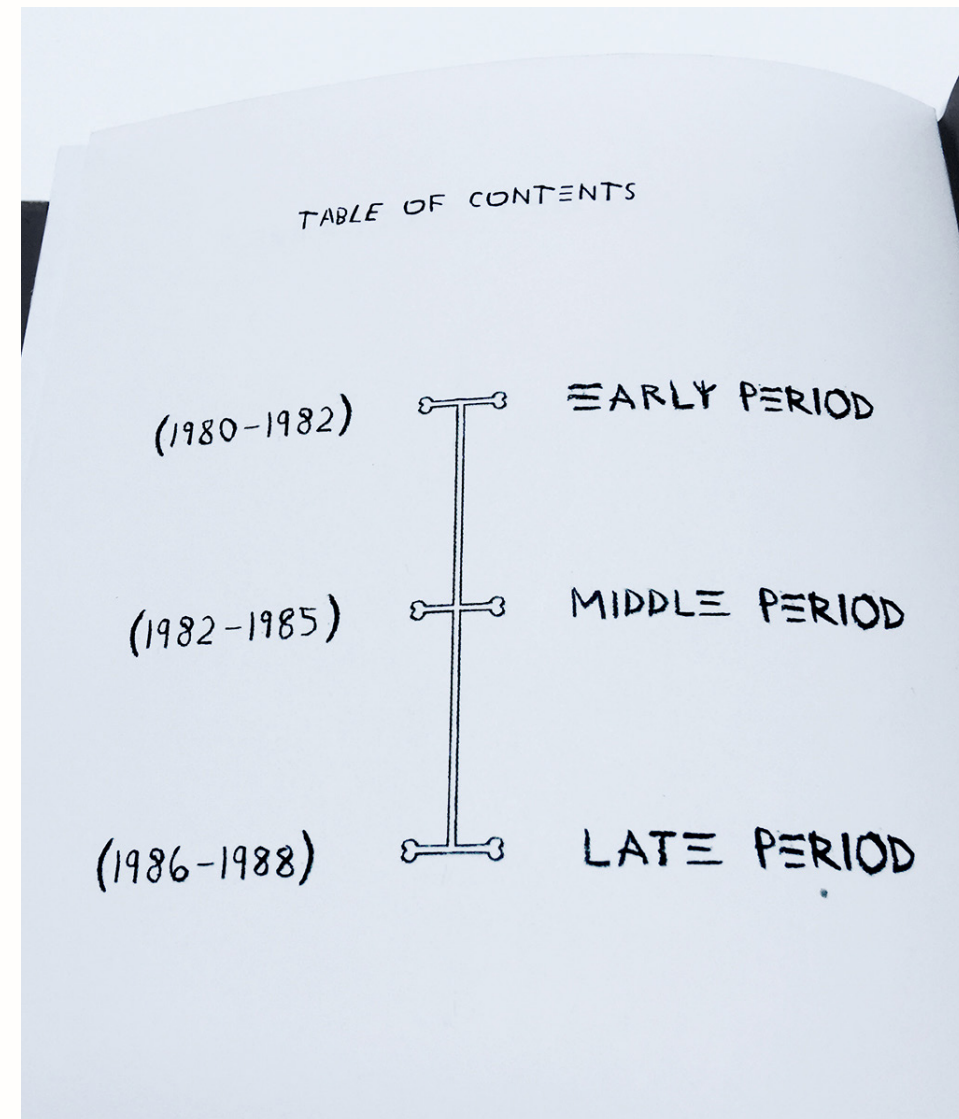 TABLE OF CONTENTS
(1980-1982) EARLY PERIOD
(1982-1985) MIDDLE PERIOD
(1986-1988) LATE PERIOD